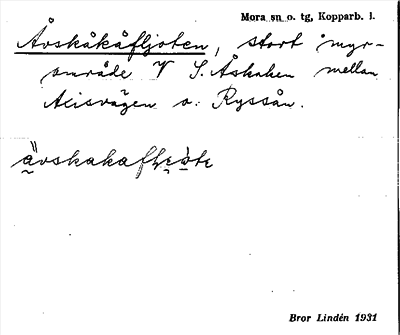 Mora sn o. tg, Kopparb. l.
Åvskåkåfljoten, stort myr-
område V S. Åskaken mellan
Acisvägen o. Ryssån.
Bror Lindén 1931